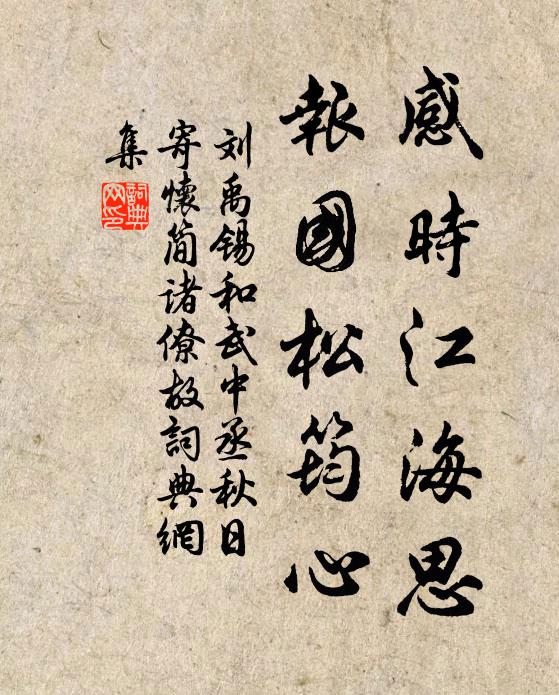 感時江海思
報國松筠心
刘禹锡和武中丞秋日
寄懷簡诸僚故詞典網
集
詞典
网印